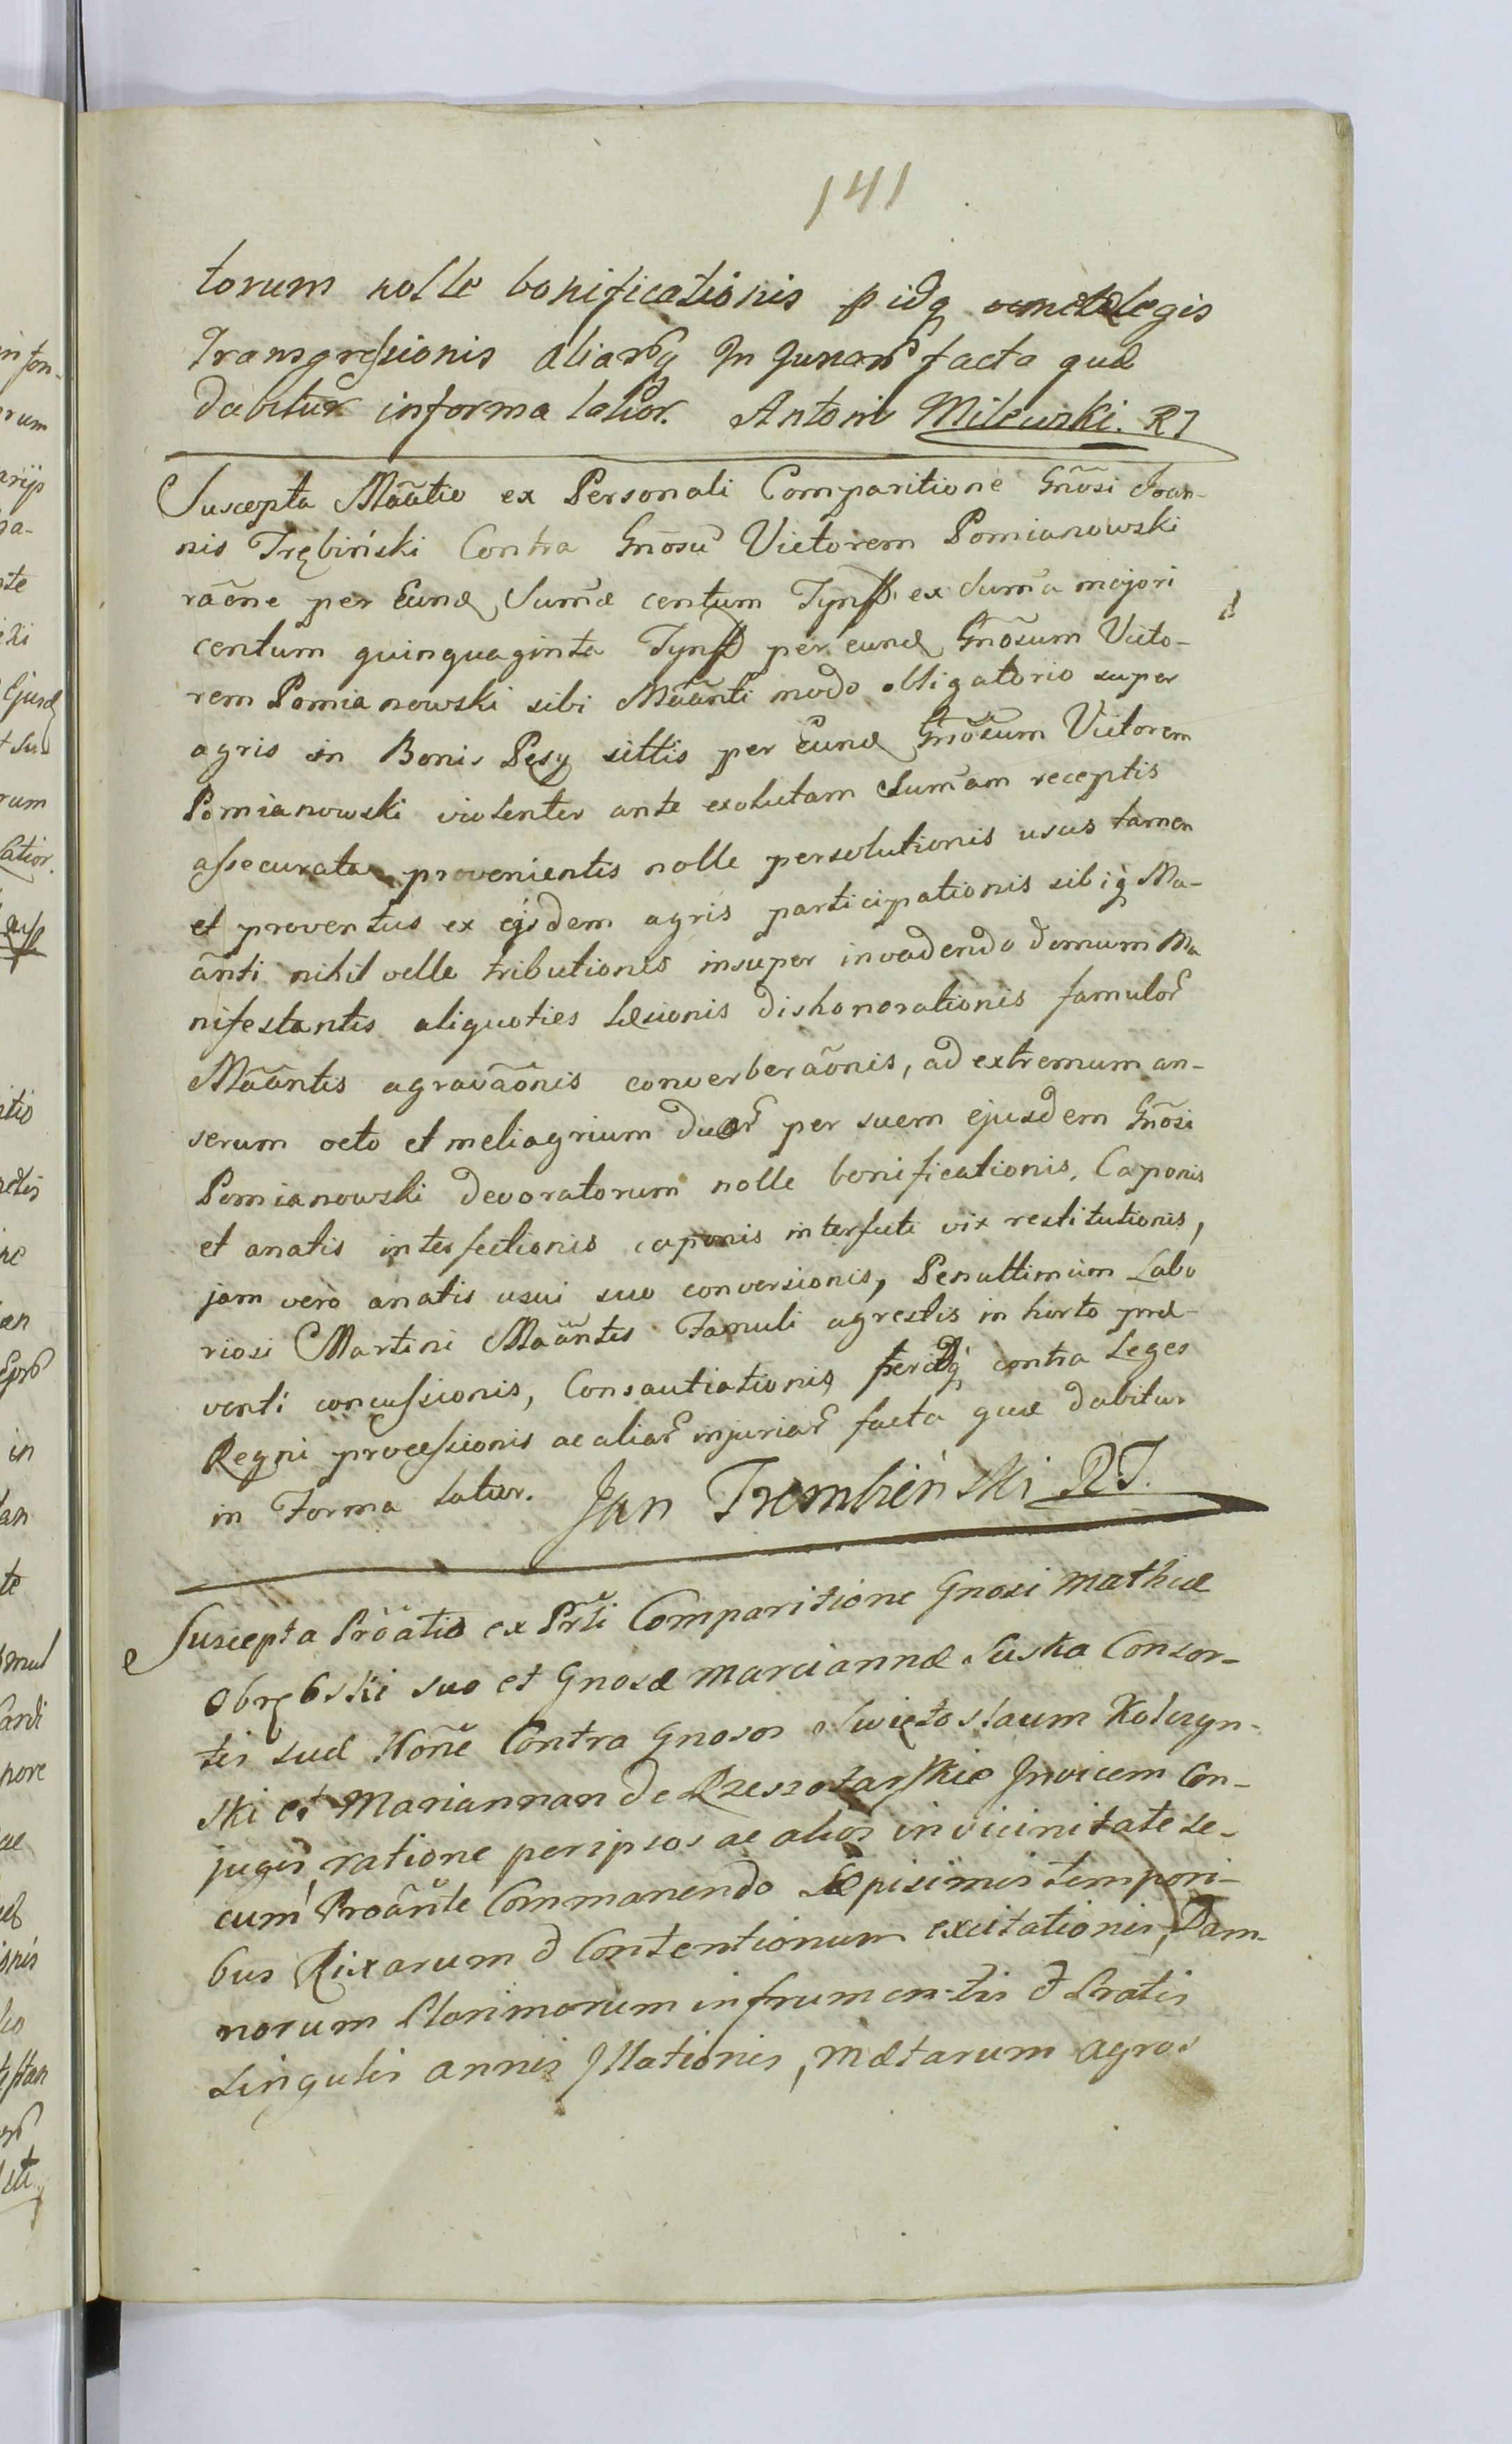 141
torum nolle bonificationis p idq legis
Transgressionis aliarq In Juriar facta quæ
dabitur in forma latior. Antoni Milewski. RJ
Suscepta Mãatio ex Personali Comparitione Gnõsi Joan-
nis Trębiński Contra Gnõsũ Victorem Pomianowski
rãone per Eund Sum̃æ centum Tynff ex Sum̃a majori
centum quinquaginta Tynff per eund Gnõsum Victo-
rem Pomianowski sibi Mãanti modo obligatorio super
agris in Bonis Pęsy sittis per Eund Gnõsum Victorem
Pomianowski violenter ante exolutam Sum̃am receptis
assecurata provenientis nolle persolutionis usus tamen
et proventus ex ejsdem agris participationis sibiq Ma-
ãnti nihil velle tributionis insuper invadendo domum Ma
nifestantis aliquoties Læsionis dishonorationis famulor
Mãantis agravãonis converberãonis, ad extremum an-
serum octo et meliagrium duor per suem ejusdem Gnõsi
Pomianowski devoratorum nolle bonificationis, Caponis
et anatis interfectionis caponis interfecti vix restitutionis,
jam vero anatis usui suo conversionis, Penultimum Labo
riosi Martini Mãantis Famuli agrestis in horto præ-
venti concussionis, Consautiationis peridq contra Leges
Regni processionis ac aliar injuriar facta quæ dabitur
in Forma latior. Jan Trembieński RJ.
Suscepta Prõatio ex Prŝti Comparitione Gnosi Mathiæ
Obrębski suo et Gnosæ Mariannæ Suska Consor-
tis suæ Nõne Contra Gnosos Swiętoslaum Kolczyn-
ski et Mariannan de Rzeszotarskie Invicem Con-
juges, ratione per ipsos ac alios in vicinitate se-
cum Proãnte Commanendo Sæpisimis tempori-
bus Rixarum & Contentionum excitationis, Dam-
norum Plorimorum in frumentis & Pratis
singulis annis Illationis, Mætarum agros